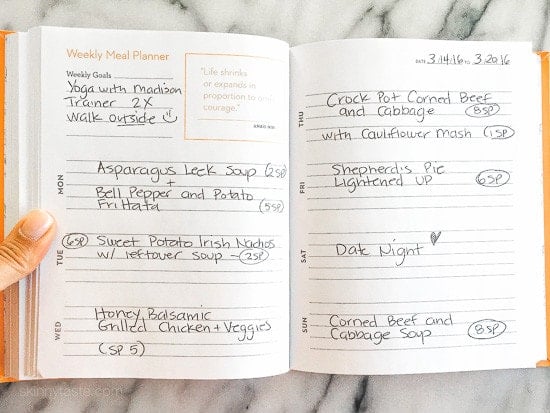 Weekly Meal Planner
Weekly Goals
Yoga with Madison
Trainer 2X
Walk outside
"Life shrinks
or expands in
proportion to
courage."
ANAIS NIN
MON
Asparagus Leek Soup (2SP)
+
Bell Pepper and Potato
Frittata (5SP)
TUE
(6SP) Sweet Potato Irish Nachos
w/ leftover soup - (2SP)
WED
Honey Balsamic
Grilled Chicken + Veggies
(SP 5)
DATE 3.14.16 TO 3.20.16
THU
Crock Pot Corned Beef
and Cabbage (8SP)
with Cauliflower Mash (1SP)
FRI
Shepherd's Pie
Lightened UP (6SP)
SAT
Date Night
SUN
Corned Beef and
Cabbage Soup (8SP)
skinnytaste.com